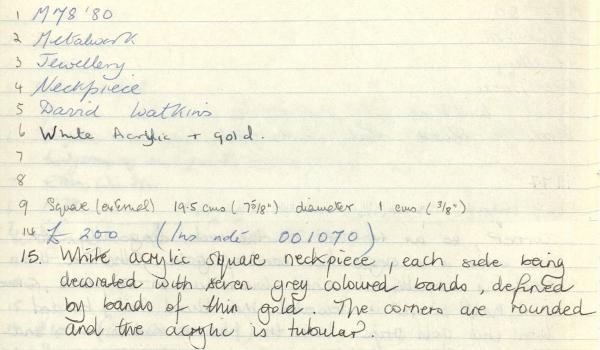 1 M78 '80
2 Metalwork
3 Jewellery
4 Neckpiece
5 David Watkins
6 White Acrylic + gold.
7
8
9 Square (external) 19.5 cms (7 5/8") diameter 1 cms (3/8")
14 £ 200 (Ins note 001070)
15. White acrylic square neckpiece, each side being
decorated with seven grey coloured bands, defined
by bands of thin gold. The corners are rounded
and the acrylic is tubular.